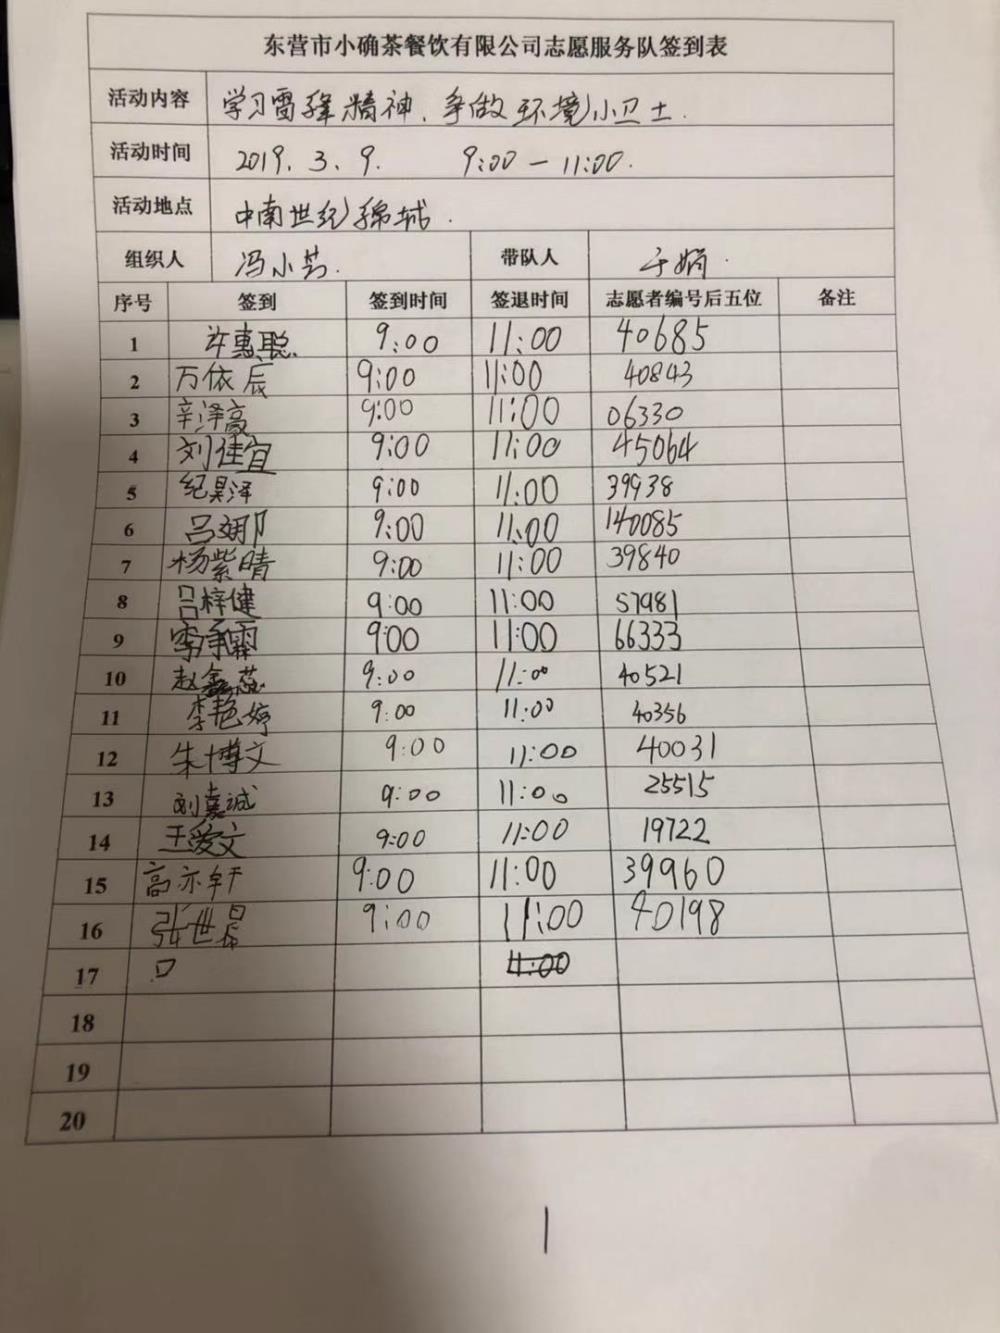 东营市小确茶餐饮有限公司志愿服务队签到表
活动内容 学习雷锋精神、争做环境小卫士.
活动时间 2019.3.9. 9:00-11:00.
活动地点 中南世纪锦城.
组织人 冯小芸. 带队人 于娟.
序号 签到 签到时间 签退时间 志愿者编号后五位 备注
1 许惠聪 9:00 11:00 40685
2 万依辰 9:00 11:00 40843
3 辛泽高 9:00 11:00 06330
4 刘佳宜 9:00 11:00 45064
5 纪昊泽 9:00 11:00 39938
6 吕翊 9:00 11:00 140085
7 杨紫晴 9:00 11:00 39840
8 吕梓健 9:00 11:00 57981
9 李承霖 9:00 11:00 66333
10 赵鑫蕊 9:00 11:00 40521
11 李艳婷 9:00 11:00 40356
12 朱博文 9:00 11:00 40031
13 刘嘉诚 9:00 11:00 25515
14 王爱文 9:00 11:00 19722
15 高亦轩 9:00 11:00 39960
16 张世昌 9:00 11:00 40198
17 口 4:00
18
19
20
1